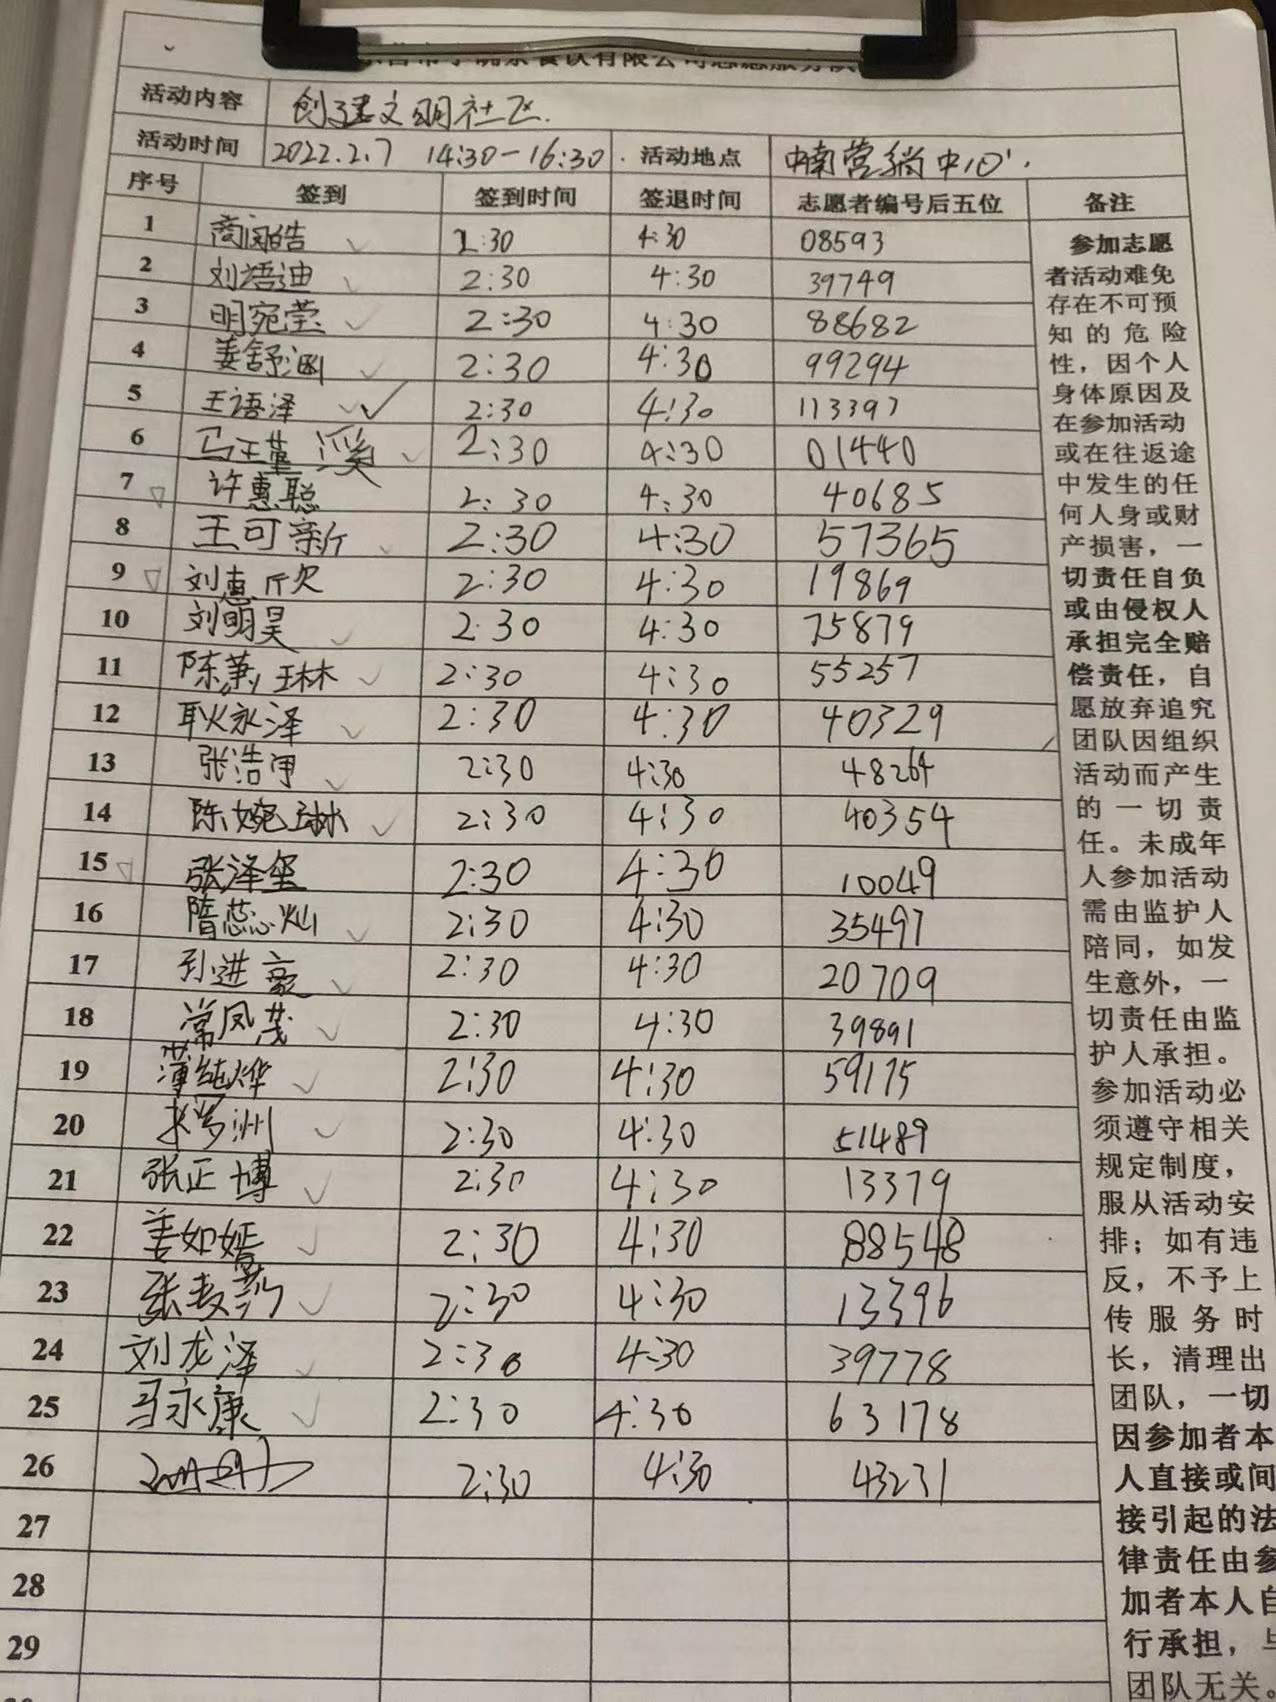 餐饮有限公司志愿服务队
活动内容 创建文明社区.
活动时间 2022.2.7 14:30-16:30. 活动地点 营销中心.
序号 签到 签到时间 签退时间 志愿者编号后五位 备注
1 2:30 4:30 08593
2 刘语迪 2:30 4:30 39749
3 明宛莹 2:30 4:30 88682
4 姜舒涵 2:30 4:30 99294
5 王语泽 2:30 4:30 113397
6 马王堇溪 2:30 4:30 01440
7 许惠聪 2:30 4:30 40685
8 王可新 2:30 4:30 57365
9 刘惠欣 2:30 4:30 19869
10 刘明昊 2:30 4:30 75879
11 陈 琳 2:30 4:30 55257
12 耿永泽 2:30 4:30 40329
13 张浩 2:30 4:30 48264
14 陈婉琳 2:30 4:30 40354
15 张泽玺 2:30 4:30 10049
16 隋蕊灿 2:30 4:30 35497
17 孙进豪 2:30 4:30 20709
18 常凤茂 2:30 4:30 39891
19 薄纯烨 2:30 4:30 59175
20 洲 2:30 4:30 51489
21 张正博 2:30 4:30 13379
22 姜如嫣 2:30 4:30 88548
23 张 2:30 4:30 13396
24 刘龙泽 2:30 4:30 39778
25 马永康 2:30 4:30 63178
26 2:30 4:30 43231
27
28
29
参加志愿
者活动难免
存在不可预
知的危险
性，因个人
身体原因及
在参加活动
或在往返途
中发生的任
何人身或财
产损害，一
切责任自负
或由侵权人
承担完全赔
偿责任，自
愿放弃追究
团队因组织
活动而产生
的一切责
任。未成年
人参加活动
需由监护人
陪同，如发
生意外，一
切责任由监
护人承担。
参加活动必
须遵守相关
规定制度，
服从活动安
排；如有违
反，不予上
传服务时
长，清理出
团队，一切
因参加者本
人直接或间
接引起的法
律责任由参
加者本人自
行承担，与
团队无关。